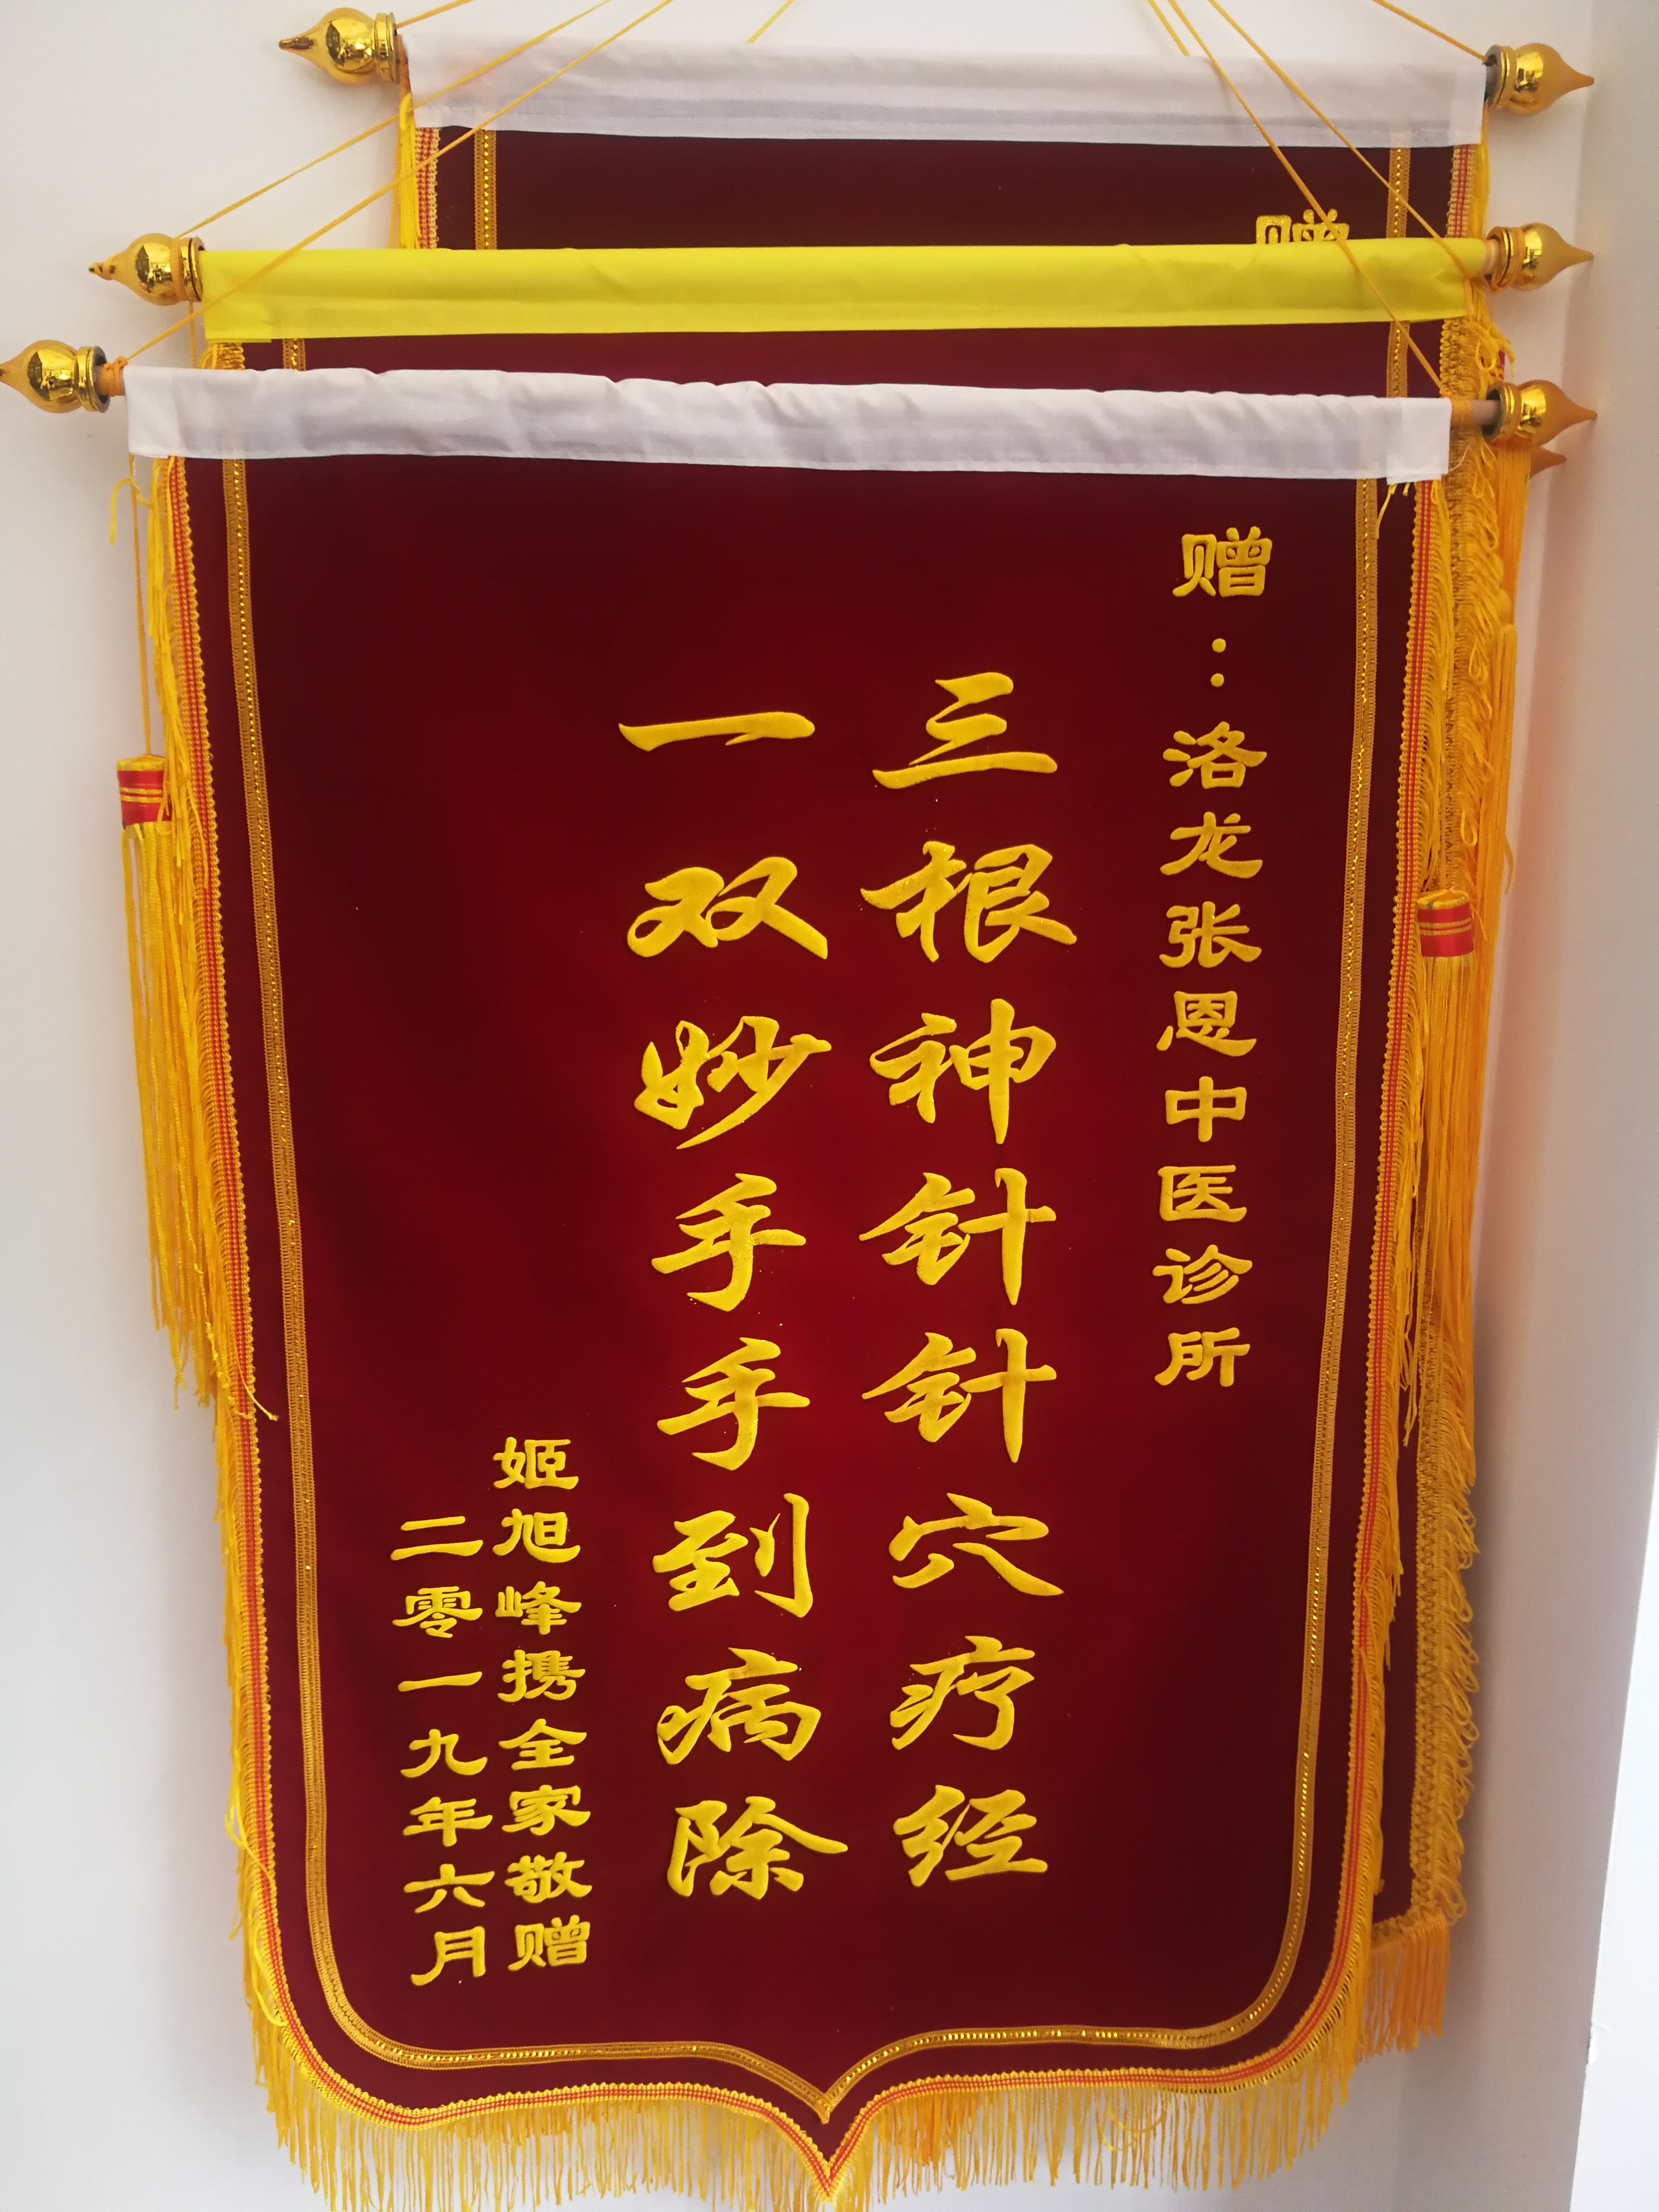 赠
赠：洛龙张恩中医诊所
三根神针针穴疗经
一双妙手手到病除
姬旭峰携全家敬赠
二零一九年六月